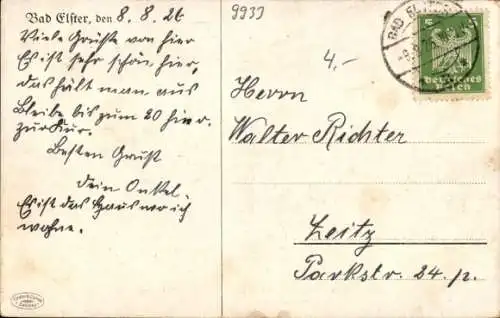 Bad Elster, den 8. 8. 26
Viele Grüsse von hier
Es ist sehr schön, hier,
das hält man aus
Bleibe bis zum 20 hier.
zur Kur.
Besten Gruß
dein Onkel.
Es ist das Haus wo ich
wohne.
9933
4,-
BAD ELSTER
Deutsches
Reich
Herrn
Walter Richter
Zeitz
Parkstr. 24. p.